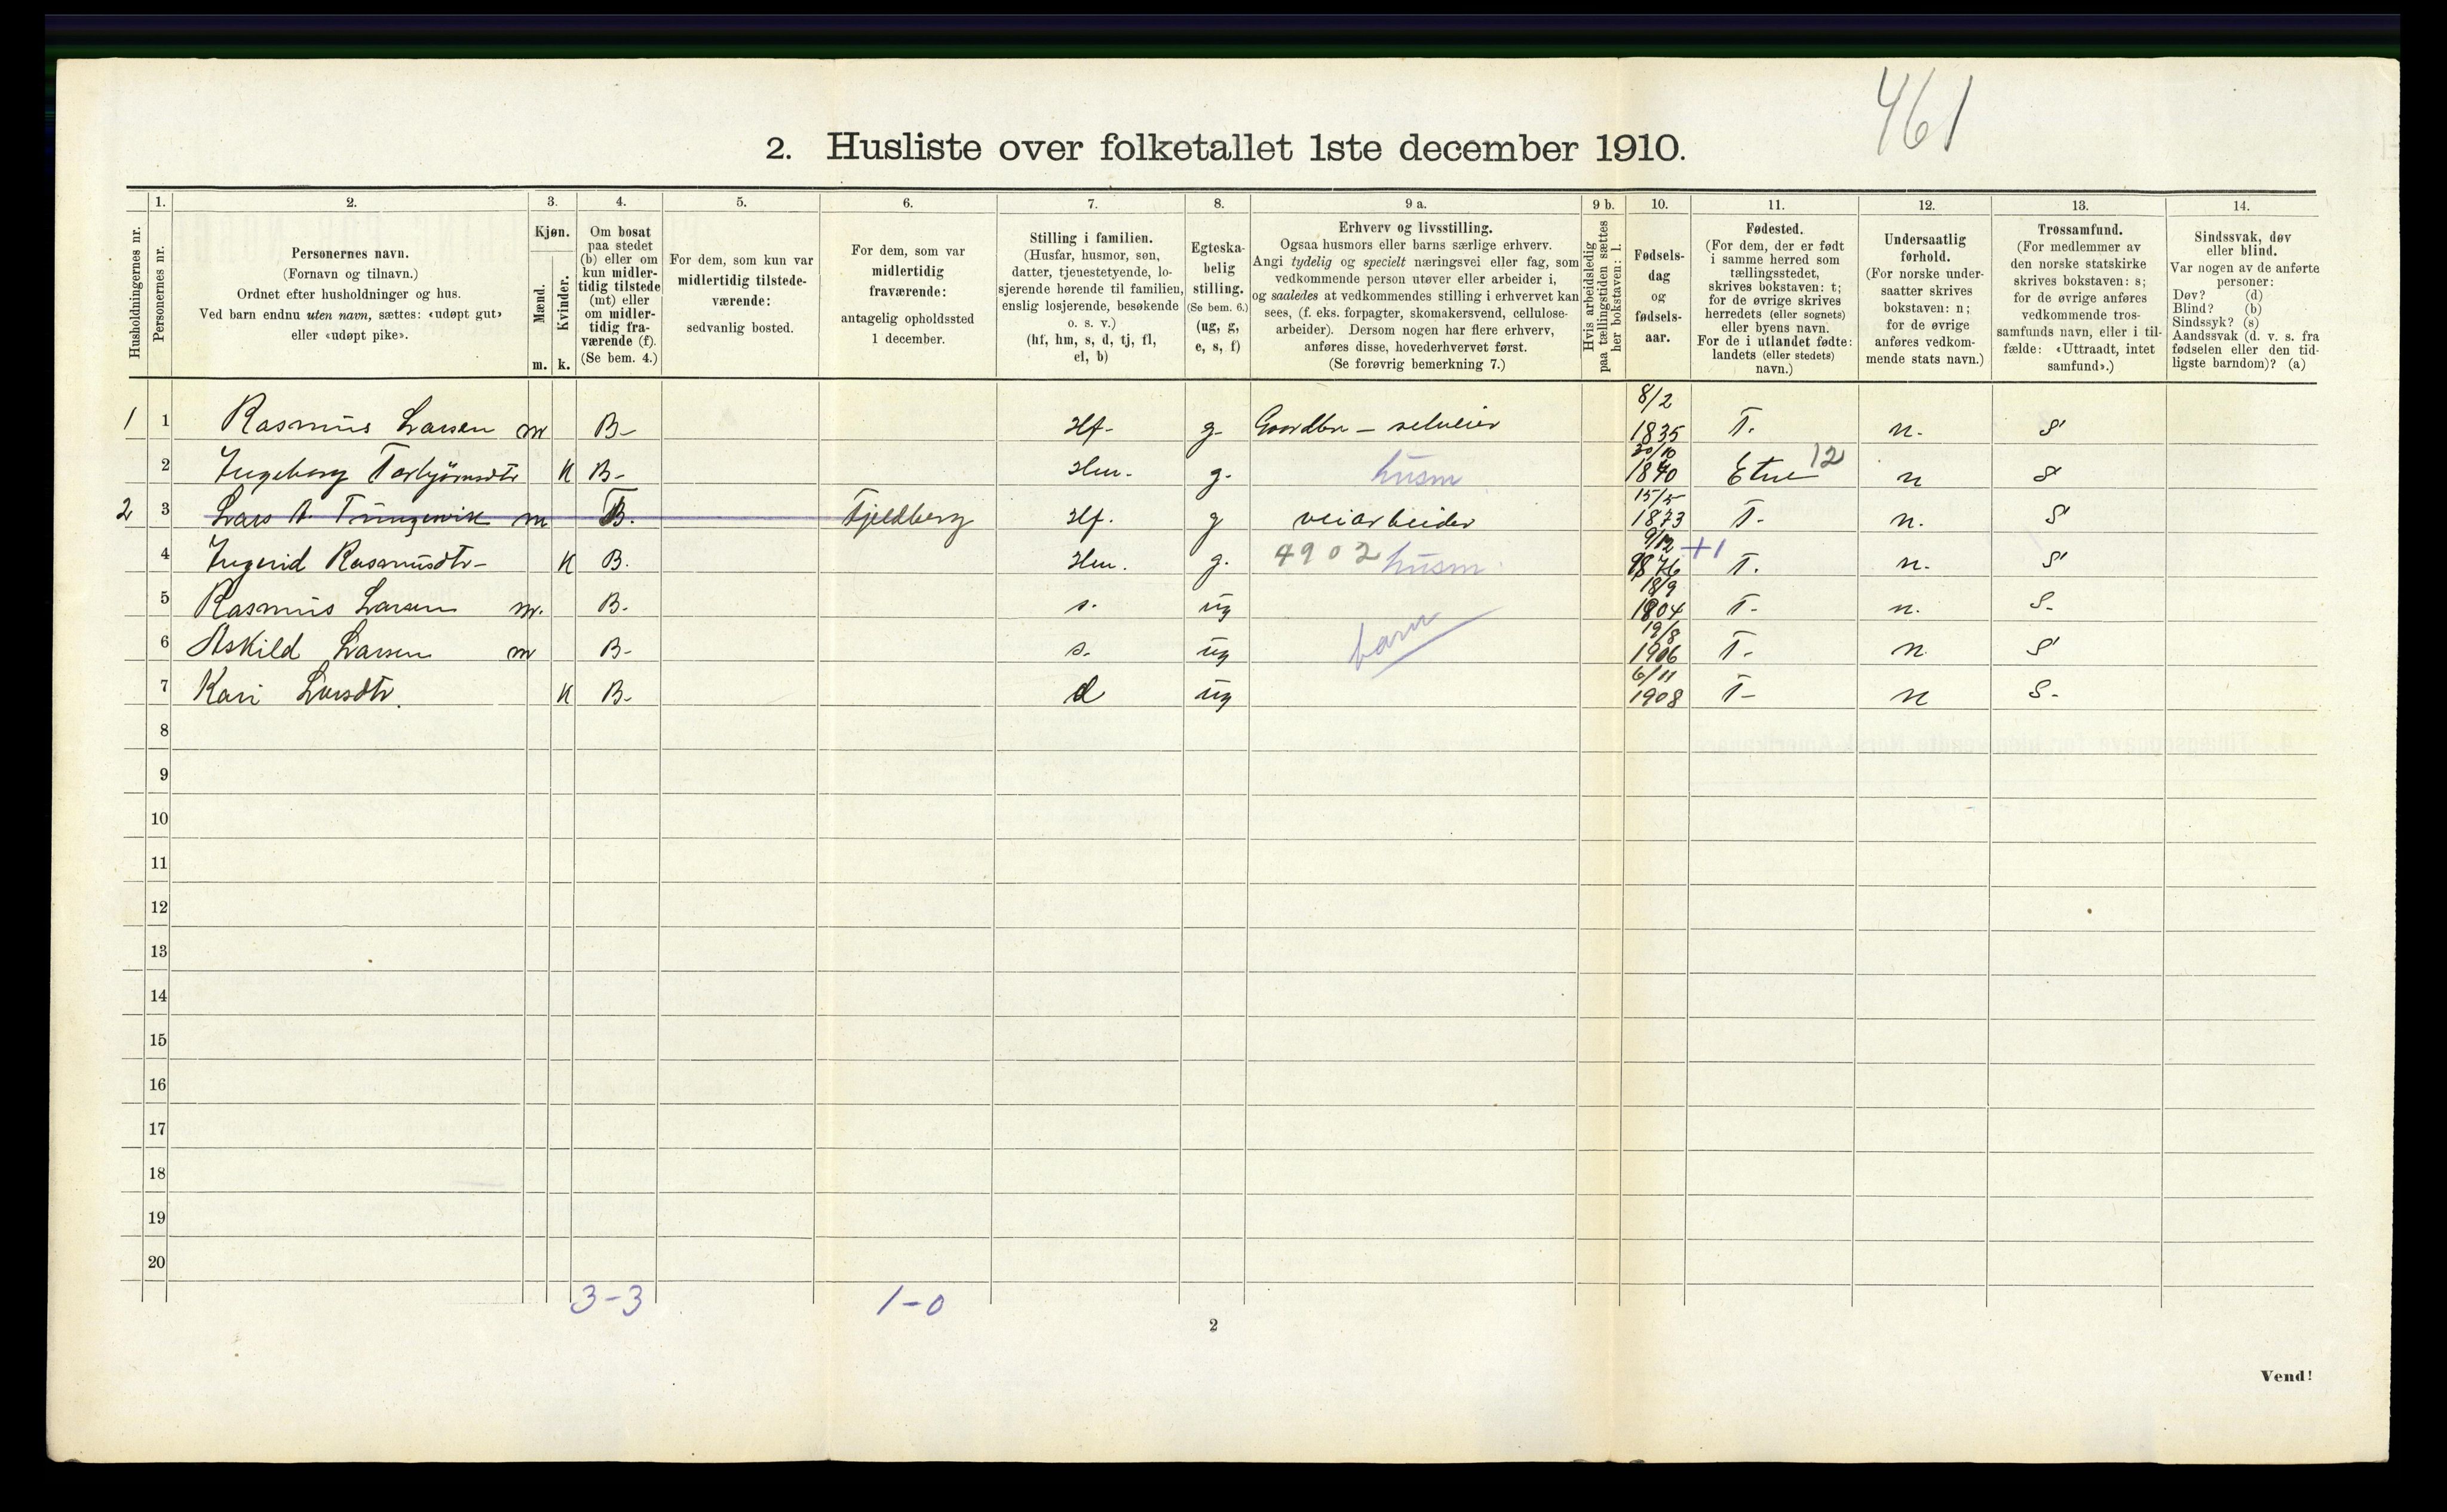 461
2. Husliste over folketallet 1ste december 1910.
Husholdningernes nr.
1. Personernes nr.
2. Personernes navn. (Fornavn og tilnavn.) Ordnet efter husholdninger og hus. Ved barn endnu uten navn, sættes: «udøpt gut» eller «udøpt pike».
3. Kjøn. Mænd. m. Kvinder. k.
4. Om bosat paa stedet (b) eller om kun midlertidig tilstede (mt) eller om midlertidig fraværende (f). (Se bem. 4.)
5. For dem, som kun var midlertidig tilstedeværende: sedvanlig bosted.
6. For dem, som var midlertidig fraværende: antagelig opholdssted 1 december.
7. Stilling i familien. (Husfar, husmor, søn, datter, tjenestetyende, losjerende hørende til familien, enslig losjerende, besøkende o. s. v.) (hf, hm, s, d, tj, fl, el, b)
8. Egteskabelig stilling. (Se bem. 6.) (ug, g, e, s, f)
9 a. Erhverv og livsstilling. Ogsaa husmors eller barns særlige erhverv. Angi tydelig og specielt næringsvei eller fag, som vedkommende person utøver eller arbeider i, og saaledes at vedkommendes stilling i erhvervet kan sees, (f. eks. forpagter, skomakersvend, cellulosearbeider). Dersom nogen har flere erhverv, anføres disse, hovederhvervet først. (Se forøvrig bemerkning 7.)
9 b. Hvis arbeidsledig paa tællingstiden sættes her bokstaven: l.
10. Fødselsdag og fødselsaar.
11. Fødested. (For dem, der er født i samme herred som tællingsstedet, skrives bokstaven: t; for de øvrige skrives herredets (eller sognets) eller byens navn. For de i utlandet fødte: landets (eller stedets) navn.)
12. Undersaatlig forhold. (For norske undersaatter skrives bokstaven: n; for de øvrige anføres vedkommende stats navn.)
13. Trossamfund. (For medlemmer av den norske statskirke skrives bokstaven: s; for de øvrige anføres vedkommende trossamfunds navn, eller i tilfælde: «Uttraadt, intet samfund».)
14. Sindssvak, døv eller blind. Var nogen av de anførte personer: Døv? (d) Blind? (b) Sindssyk? (s) Aandssvak (d. v. s. fra fødselen eller den tidligste barndom)? (a)
1 1 Rasmus Larsen m B- Hf- g- Gaardbr - selveier 8/2 1835 T. n. S
2 Ingeborg Torbjørnsdtr K B- Hm. g. husm 30/10 1840 Etne 12 n S
2 3 Lars A. m B. Fjeldberg Hf. g veiarbeider 15/5 1873 T- n. S
4 Ingerid Rasmusdtr- K B. Hm. g. 4902 husm. 9/12 1876 +1 T. n. S
5 Rasmus Larsen m. B. s. ug 18/9 1904 T- n. S-
6 Askild Larsen m B- s. ug barn 19/8 1906 T- n S
7 Kari Larsdtr. K B- d ug 6/11 1908 T- n S-
8
9
10
11
12
13
14
15
16
17
18
19
20
3-3 1-0
2
Vend!